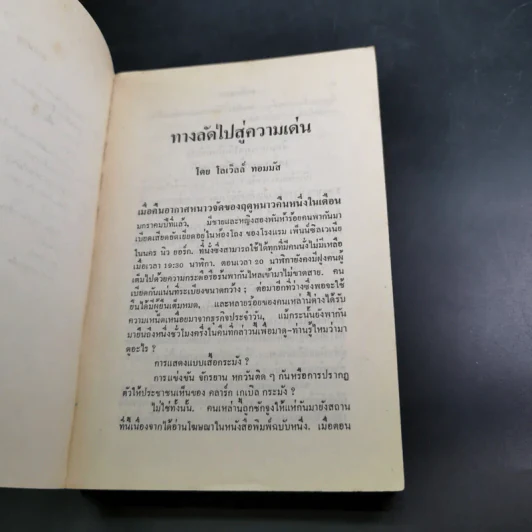 ทางลัดไปสู่ความเด่น
โดย โลเวิลล์ ทอมมัส
เมื่อคืนอากาศหนาวจัดของฤดูหนาวคืนหนึ่งในเดือน
มกราคมปีที่แล้ว, มีชายและหญิงสองพันห้าร้อยคนพากันมา
เบียดเสียดยัดเยียดอยู่ในห้องโถง ของโรงแรม เพ็นน์ซิลเวเนีย
ในนคร นิว ยอร์ก. ที่นั่งซึ่งสามารถใช้ได้ทุกที่มีคนนั่งไม่มีเหลือ
เมื่อเวลา 19:30 นาฬิกา. ตอนเวลา 20 นาฬิกายังคงมีฝูงคนผู้
เต็มไปด้วยความกระตือรือร้นพากันไหลเข้ามาไม่ขาดสาย. คน
เบียดกันแน่นที่ระเบียงขนาดกว้าง ; ต่อมาอีกที่ว่างซึ่งพอจะใช้
ยืนได้มีผู้ยืนเต็มหมด, และหลายร้อยของคนเหล่านี้ต่างได้รับ
ความเหน็ดเหนื่อยมาจากธุรกิจประจำวัน, แม้กระนั้นยังพากัน
มายืนถึงหนึ่งชั่วโมงครึ่งในคืนที่กล่าวนี้เพื่อมาดู-ท่านรู้ไหมว่ามา
ดูอะไร ?
การแสดงแบบเสื้อกระมัง ?
การแข่งขัน จักรยาน หกวันติด ๆ กันหรือการปรากฏ
ตัวให้ประชาชนเห็นของ คลาร์ก เกเบิล กระมัง ?
ไม่ใช่ทั้งนั้น. คนเหล่านี้ถูกชักจูงให้แห่กันมายังสถาน
ที่นี้เนื่องจากได้อ่านโฆษณาในหนังสือพิมพ์ฉบับหนึ่ง. เมื่อตอน